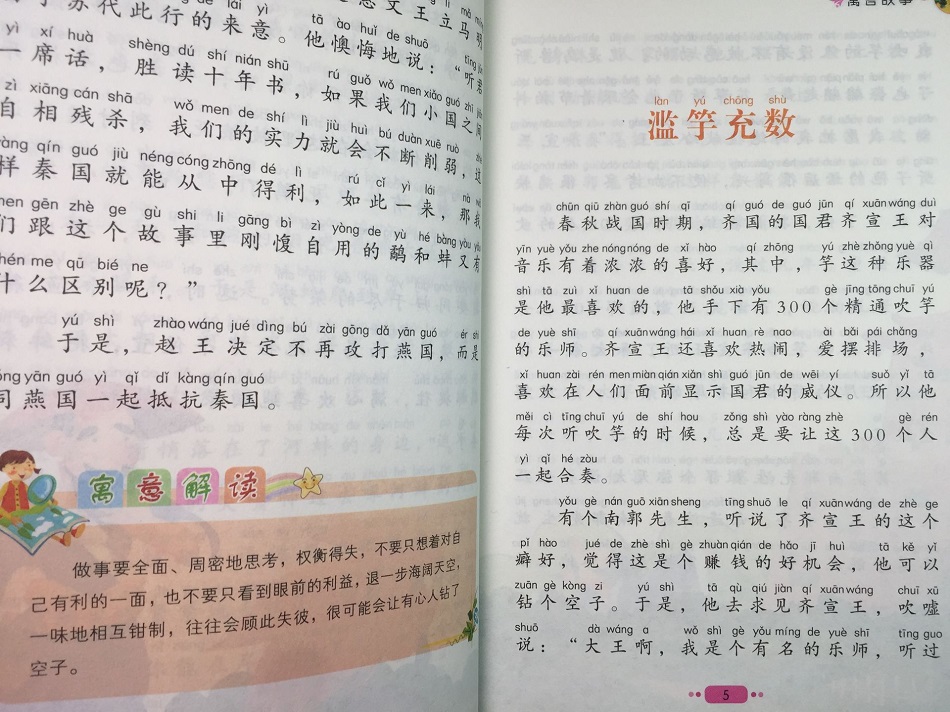 文王立马明
苏代此行的来意。他懊悔地说：“听君
yì xí huà shèng dú shí nián shū rú guǒ wǒ men xiǎo guó zhī jiān
一席话，胜读十年书，如果我们小国之间
zì xiāng cán shā wǒ men de shí lì jiù huì bú duàn xuē ruò zhè
自相残杀，我们的实力就会不断削弱，这
yàng qín guó jiù néng cóng zhōng dé lì rú cǐ yì lái nà wǒ
样秦国就能从中得利，如此一来，那我
men gēn zhè ge gù shi li gāng bì zì yòng de yù hé bàng yòu yǒu
们跟这个故事里刚愎自用的鹬和蚌又有
shén me qū bié ne
什么区别呢？”
yú shì zhào wáng jué dìng bú zài gōng dǎ yān guó ér shì
于是，赵王决定不再攻打燕国，而是
tóng yān guó yì qǐ dǐ kàng qín guó
同燕国一起抵抗秦国。
寓意解读
做事要全面、周密地思考，权衡得失，不要只想着对自
己有利的一面，也不要只看到眼前的利益，退一步海阔天空，
一味地相互钳制，往往会顾此失彼，很可能会让有心人钻了
空子。
寓言故事
làn yú chōng shù
滥竽充数
chūn qiū zhàn guó shí qī qí guó de guó jūn qí xuān wáng duì
春秋战国时期，齐国的国君齐宣王对
yīn yuè yǒu zhe nóng nóng de xǐ hào qí zhōng yú zhè zhǒng yuè qì
音乐有着浓浓的喜好，其中，竽这种乐器
shì tā zuì xǐ huan de tā shǒu xià yǒu gè jīng tōng chuī yú
是他最喜欢的，他手下有300个精通吹竽
de yuè shī qí xuān wáng hái xǐ huan rè nao ài bǎi pái chǎng
的乐师。齐宣王还喜欢热闹，爱摆排场，
xǐ huan zài rén men miàn qián xiǎn shì guó jūn de wēi yí suǒ yǐ tā
喜欢在人们面前显示国君的威仪。所以他
měi cì tīng chuī yú de shí hou zǒng shì yào ràng zhè gè rén
每次听吹竽的时候，总是要让这300个人
yì qǐ hé zòu
一起合奏。
yǒu gè nán guō xiān sheng tīng shuō le qí xuān wáng de zhè ge
有个南郭先生，听说了齐宣王的这个
pǐ hào jué de zhè shì gè zhuàn qián de hǎo jī huì tā kě yǐ
癖好，觉得这是个赚钱的好机会，他可以
zuān gè kòng zi yú shì tā qù qiú jiàn qí xuān wáng chuī xū
钻个空子。于是，他去求见齐宣王，吹嘘
shuō dà wáng a wǒ shì gè yǒu míng de yuè shī tīng guo
说：“大王啊，我是个有名的乐师，听过
5